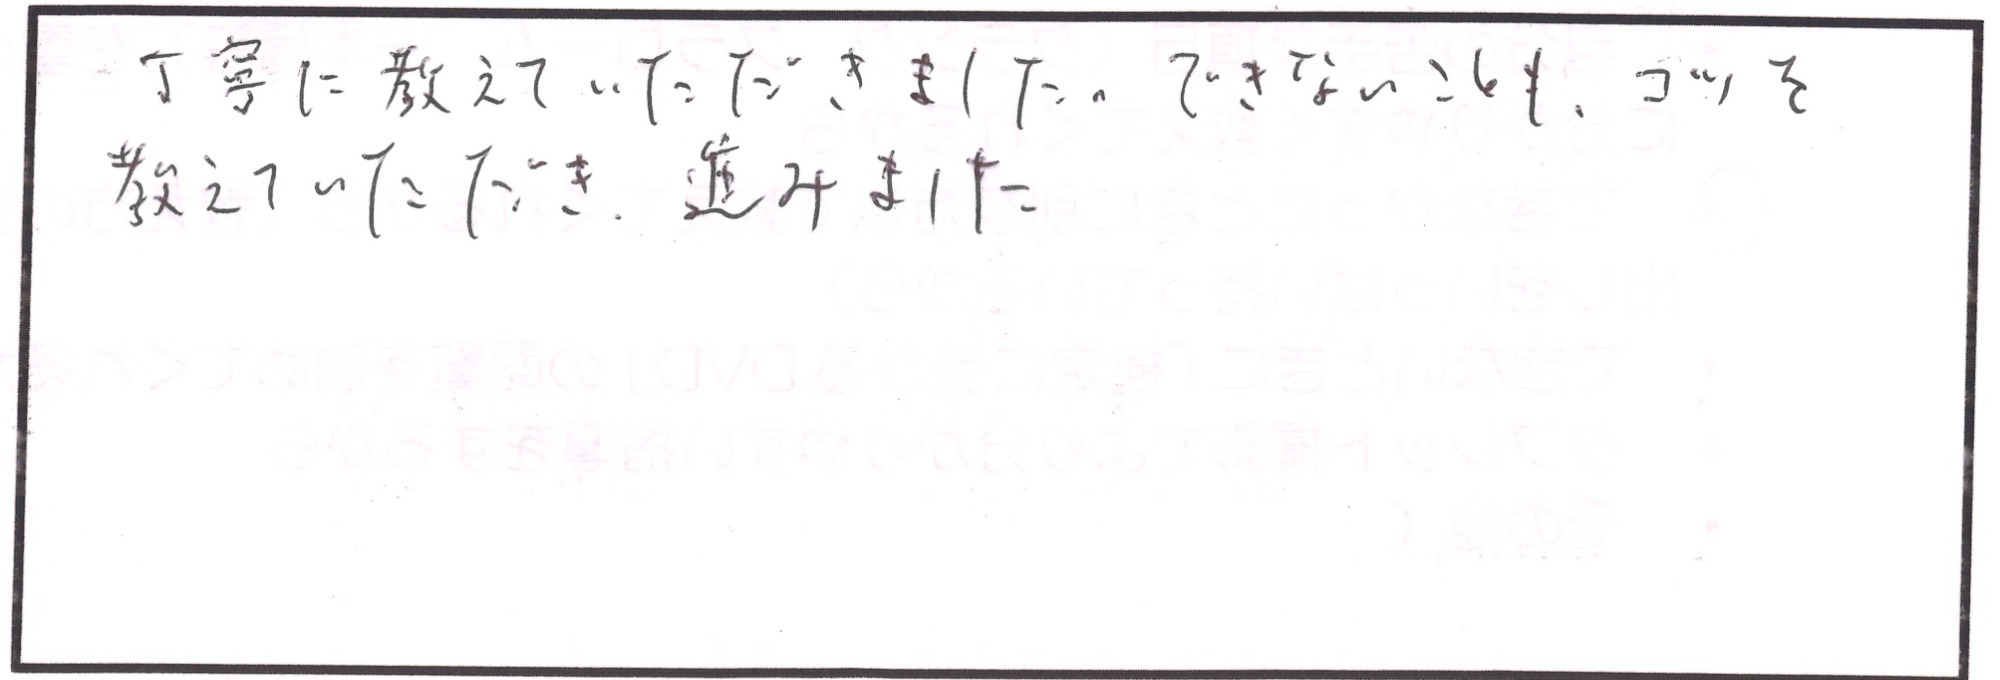 丁寧に教えていただきました。できないことも、コツを
教えていただき、進みました